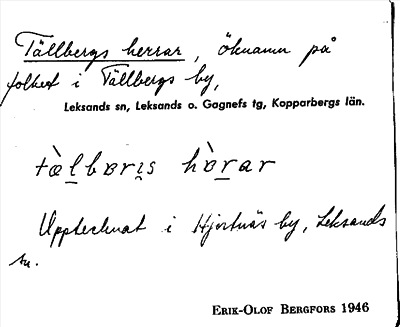 Tällbergs herrar, öknamn på
folket i Tällbergs by,
Leksands sn, Leksands o. Gagnefs tg, Kopparbergs län.
tæ̀l̠bɐri̠s hɐ̀r̠ar
Upptecknat i Hjortnäs by, Leksands
sn.
ERIK-OLOF BERGFORS 1946